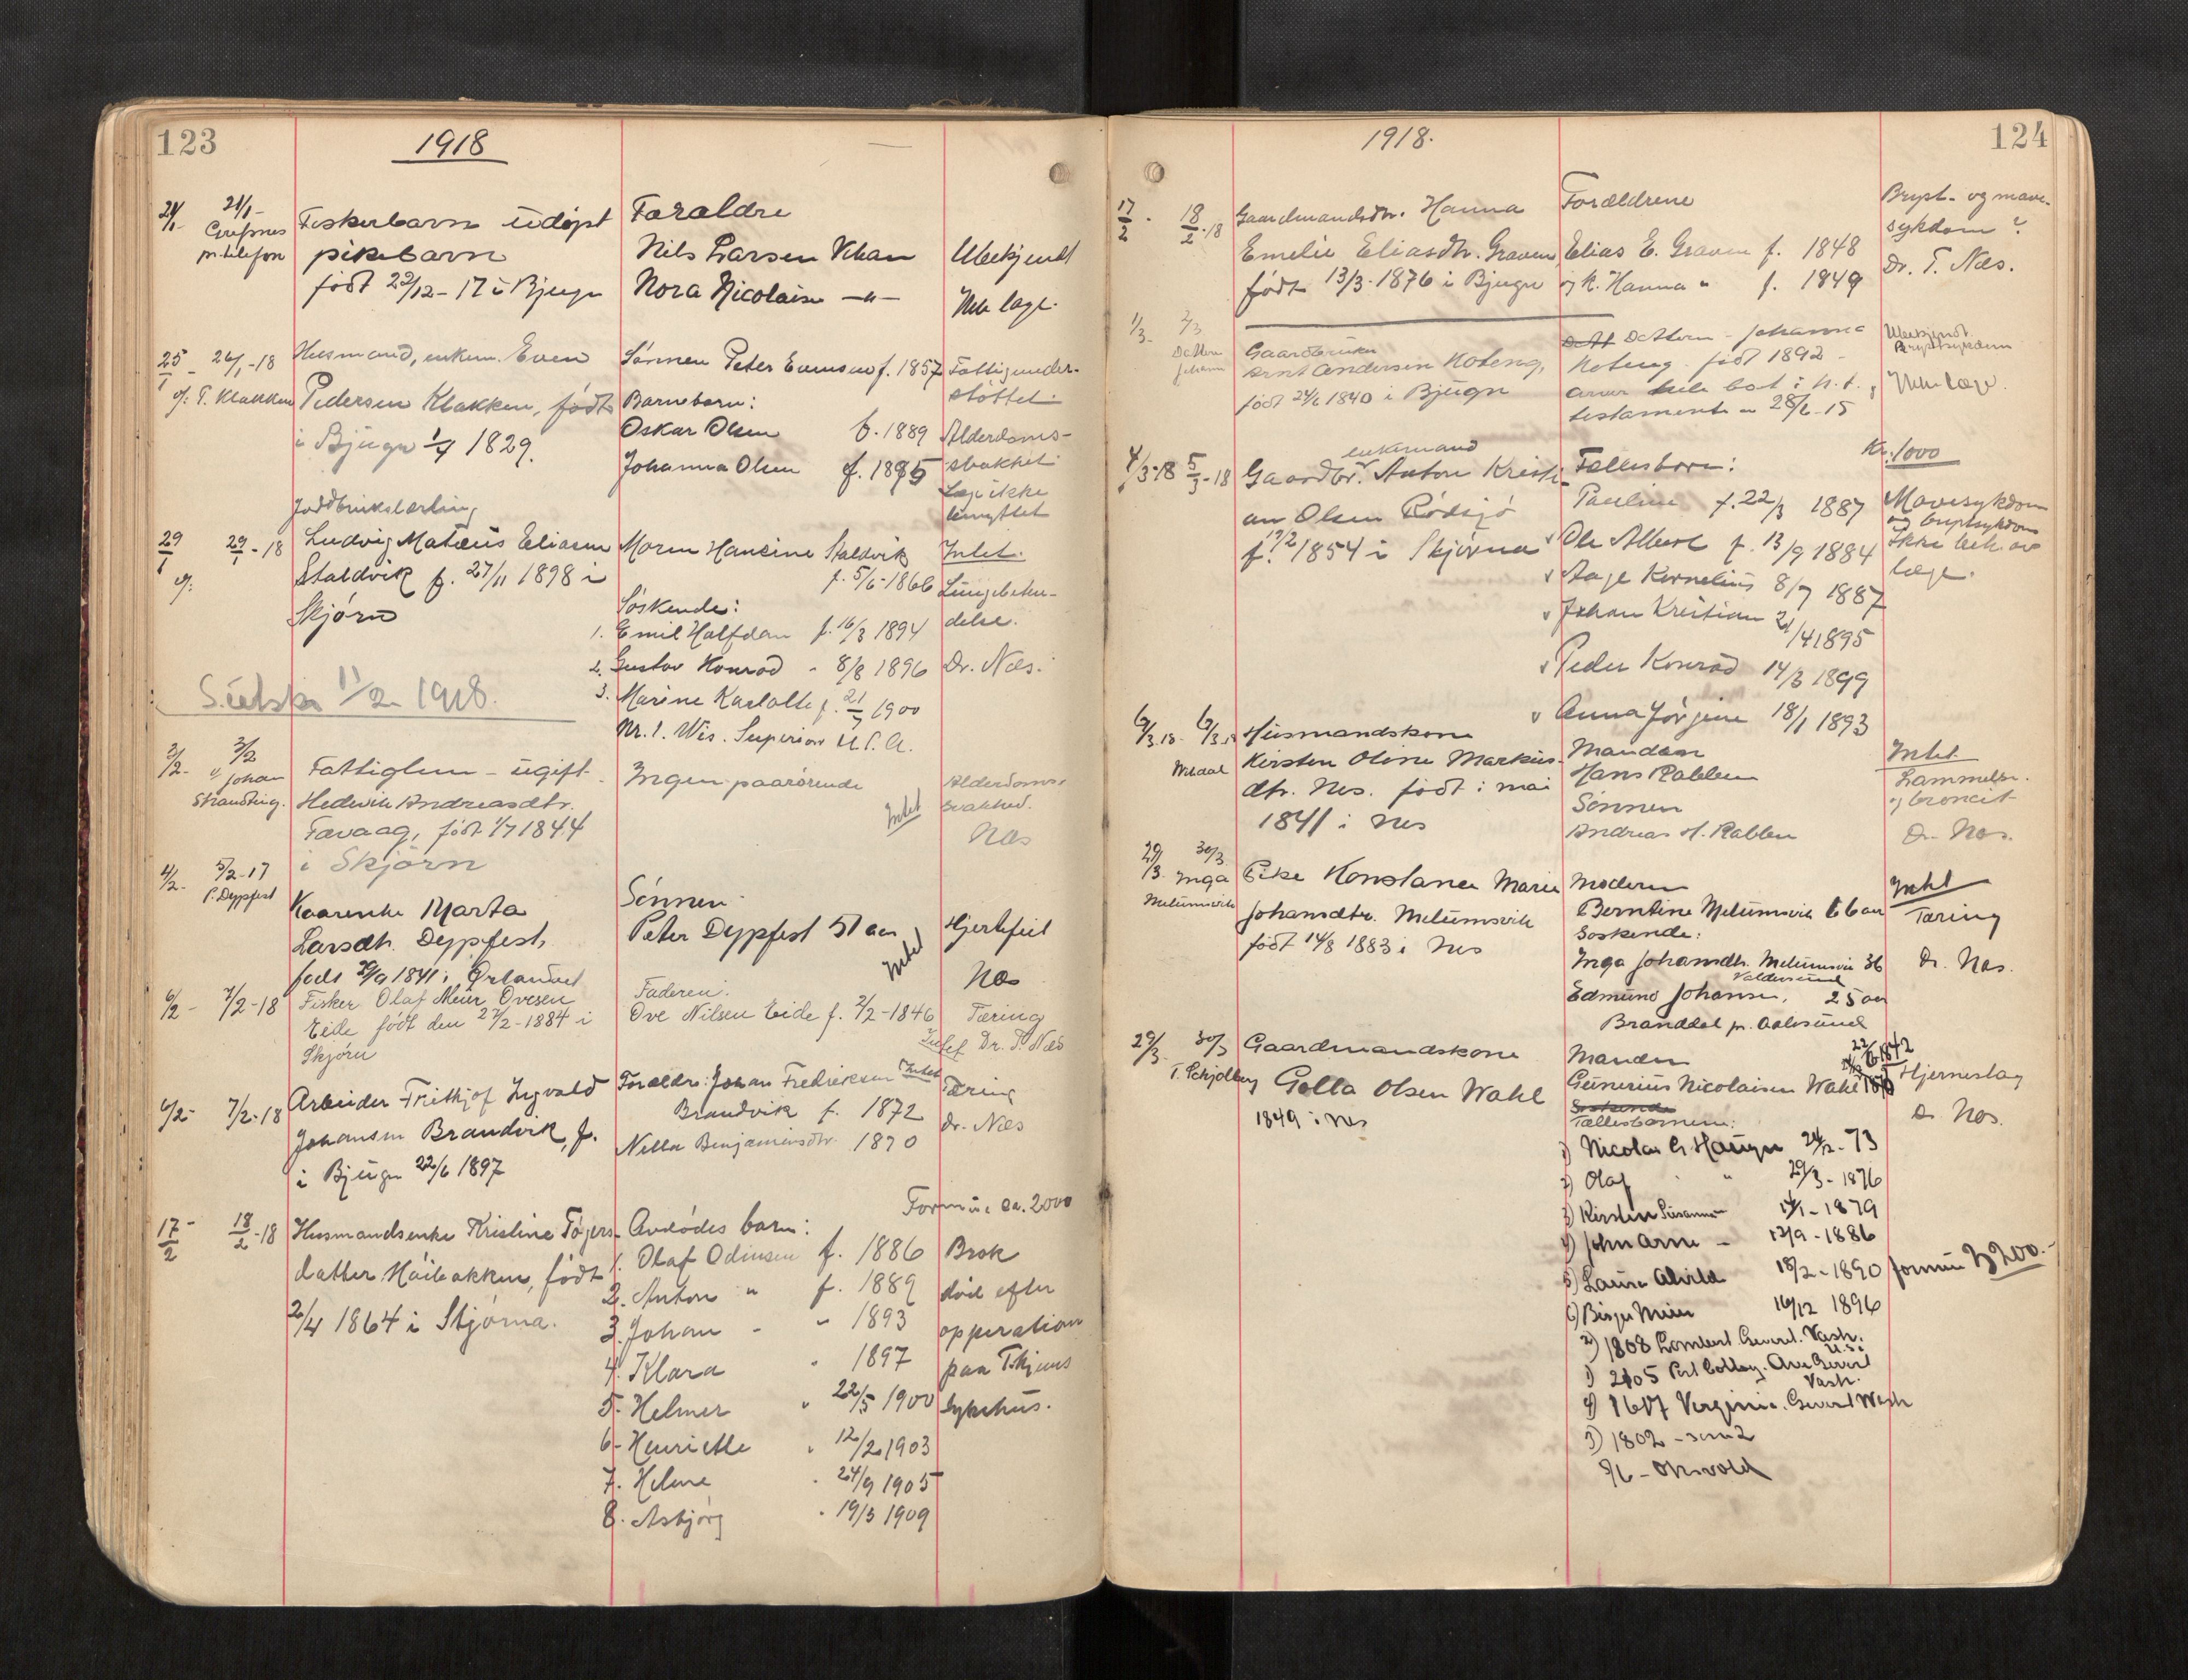 123
1918
21/1- 21/1-
pr. telefon
Fiskerbarn udöpt
pikebarn
født 22/12-17 i Bjugn
Foraldre
Nils Larsen
Nora Nicolaisen -"-
Ubekjendt
25/1 - 26/1-18
Husmand, enkem. Even
Pedersen Klakken, født
i Bjugn 1829.
Sönnen Peter Evensen f. 1857
Barnebarn:
Oskar Olsen f. 1889
Johanna Olsen f. 1895
Fattigunder-
støttet
Alderdoms-
svakhet
Læge ikke
benyttet
29/1 29/1-18
Ludvig Mateus Eliasen
Staldvik f. 27/11 1898 i
Skjörn
Moren Hansine Staldvik
f. 5/6-1866
Söskende:
1. Emil Halfdan f. 16/3 1894
2. Gustav Konrad " 8/8 1896
3. Marine
1900
Nr. 1. Wis. Superior U.S.A.
Intet.
Lungebeten-
delse.
Dr. Næs.
1/2 1918.
2/2- 3/2
v/ Johan
Fattiglem - ugift
Hedevik Andreasdtr.
født 1/7 1844
i Skjörn
Ingen paarörende
Intet
Alderdoms-
svakhed.
Næs
4/2- 5/2-17
P. Dyppfest
Marta
Larsdtr. Dyppfest,
1841 i Ørlandet
Sönnen
Peter Dyppfest 51 aar
Intet
Hjertefeil
Næs
6/2 - 7/2-18
Fisker Olaf Meier Ovesen
Eide født den 27/2-1884 i
Skjörn
Faderen:
Ove Nilsen Eide f. 2/2-1846
Intet
Tæring
Dr. T. Næs
6/2- 7/2-18
Arbeider Frithjof Ingvald
Johansen Brandvik, f.
i Bjugn 22/6 1897
Foraldre: Johan Fredriksen
Brandvik f. 1872
Nella Benjaminsdtr. 1870
Intet
Tæring
dr. Næs
17/2 - 18/2-18
Husmandsenke Kristine
datter Höibakken, født
1864 i Stjørna.
Formue ca. 2000
Avdødes barn:
1. Olaf Odinsen f. 1886
2. Anton " f. 1889
3. Johan - " 1893
4. Klara " 1897
5. Helmer " 22/5 1900
6. Henriette " 12/2 1903
7. 24/9 1905
8. Asbjörg 19/3 1909
Brok
död efter
opperation
paa
sykehus.
124
1918.
17/2 - 18/2-18
Gaardmandsdtr. Hanna
Emelie Eliasdtr. Graven
født 13/3-1876 i Bjugn
Foraldrene
Elias E. Graven f. 1848
og k. Hanna " f. 1849
Bryst- og mave-
sykdom ?
Dr. T. Næs.
1/3- 2/3
Gaardbruker
Arnt Andersen Koteng,
født 24/6 1840 i Bjugn
Datteren - Johanna
Koteng født 1892 -
testamente
Ubekjendt
Brystsykdom
4/3-18 5/3-18
enkemand
Gaardbr. Anton Kristi-
an Olsen Rödsjö
1854 i Stjörna
Fællesbarn:
Pauline f. 22/3 1887
Ole Albert f. 13/9 1884
Aage Kornelius 8/7 1887
Johan Kristian 21/4 1895
Peder Konrad 14/3 1899
Anna Jörgine 18/1 1893
Kr. 1000
Mavesykdom
og brystsykdom
Ikke beh. av
læge.
6/3.18-
Husmandskone
Kirsten Oline Markus-
dtr. Nes. født i mai
1841 i Nes
Manden
Hans Rabben
Sönnen
Andreas H. Rabben
Intet
Lammelse.
og broncit
Dr. Næs.
29/3- 30/3.
Inga
Melumsvik
Pike Konstance Marie
Johansdtr. Melumsvik
født 14/8 1883 i Nes
Moderen
Berntine Melumsvik 66 aar
Söskende:
Inga Johansdtr. Melumsvik 36
Valdersund
Edmund Johansen, 25 aar
Branddal pr. Aalesund
Intet
Tæring
Dr. Næs.
29/3- 30/3
T. Schjölberg
Gaardmandskone
Golla Olsen Wahl
1849 i Nes
Manden
Gunerius Nicolaisen Wahl
Fællesbarnene:
1) Nicolai G Haugen 24/12-73
2) Olaf " 29/3-1876
3) Kirsten Susanna 1879
4) John Arne - 12/9-1886
5) Laura Alvilda 18/2-1890
6) Birger Meier 16/12 1896
Hjerneslag
Dr. Næs.
formue
2) 1808 Lombard. Everet. Vash.
U.S.
Vash.
4) 1617 Verginia. Everet Wash
5) 1802 - som 2